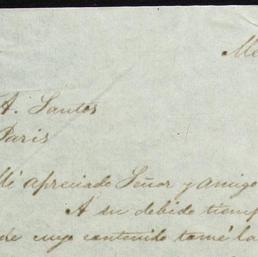 Me
A. Santos
Paris
Mi apreciado Señor y amigo
A su debido tiemp
de cuyo contenido tomé la